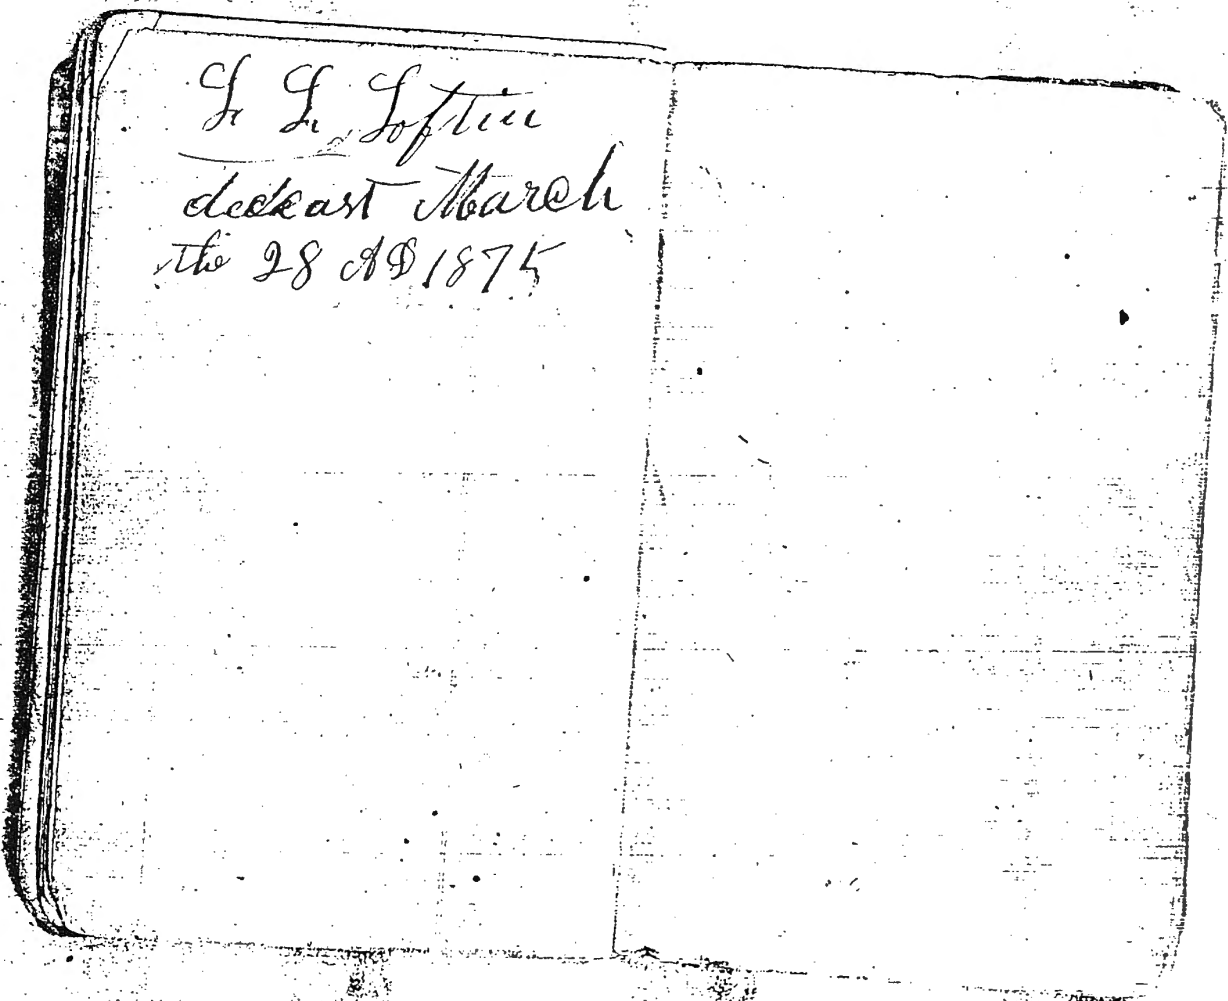 L. L. Loftin
deceast March
the 28 AD 1875